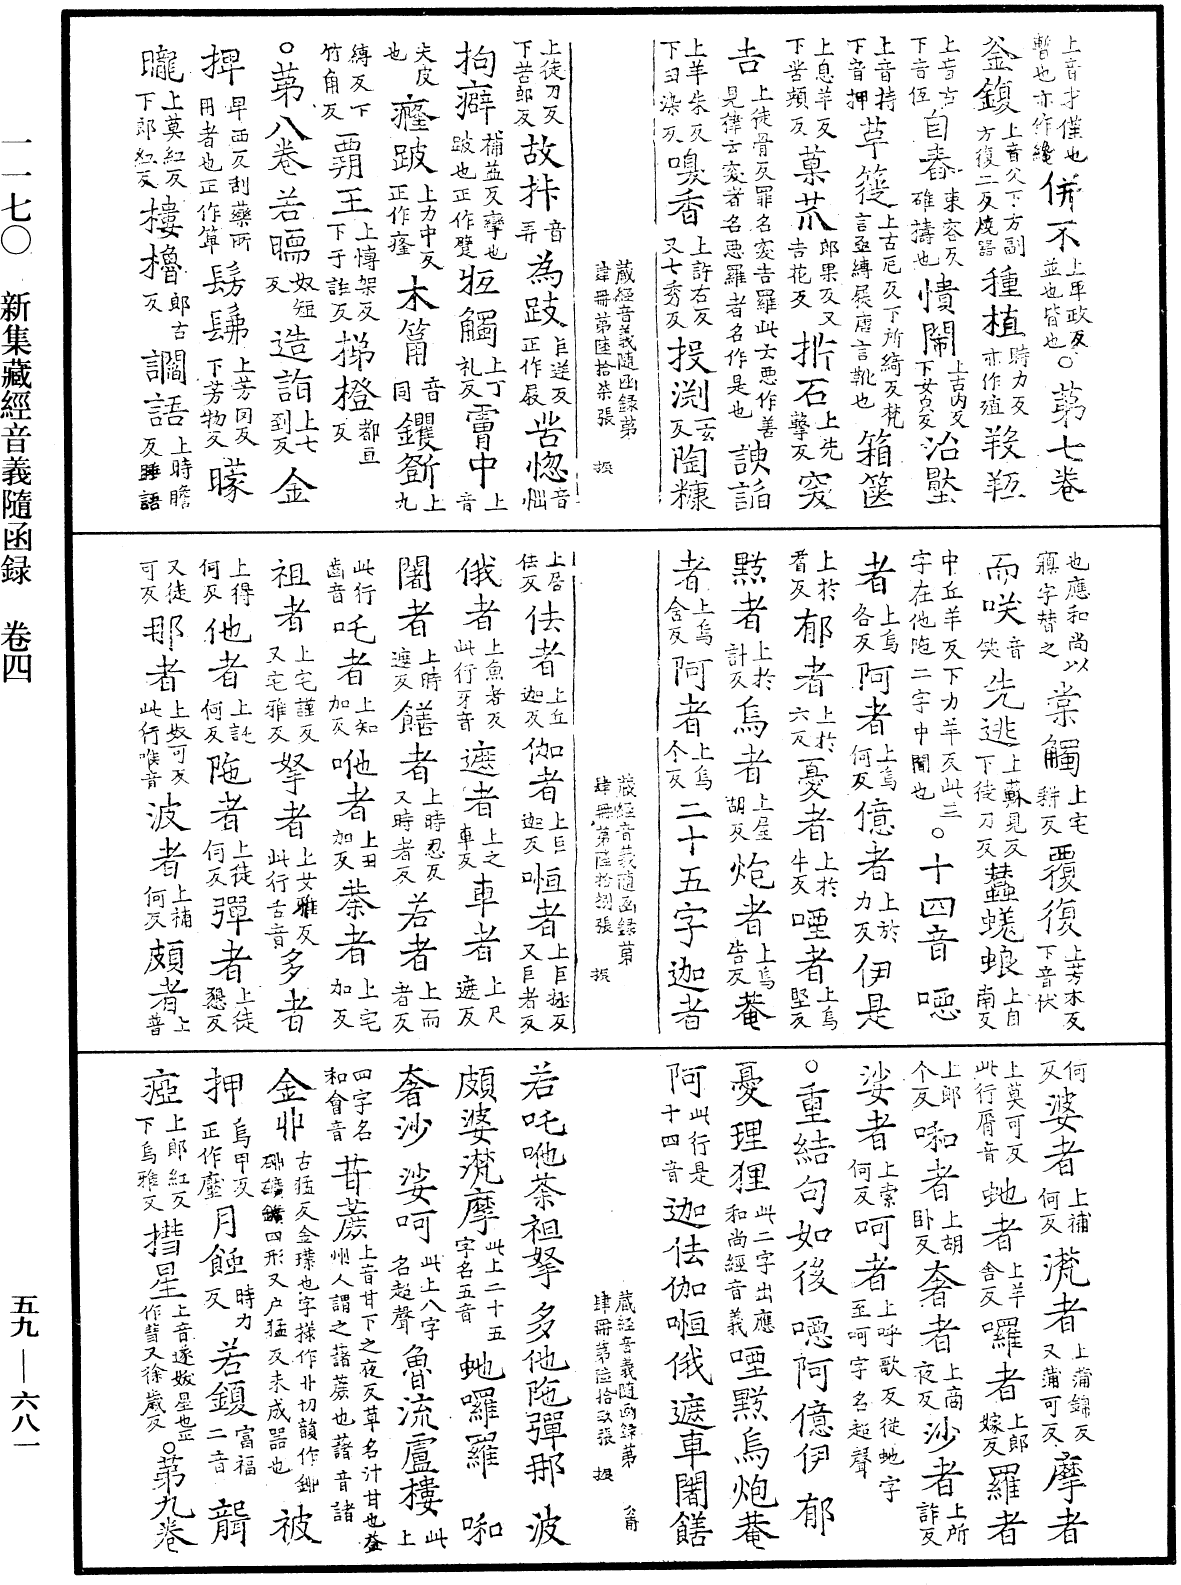 一一七〇　新集藏經音義隨函録　卷四
五九—六八一
上音才僅也
暫也亦作纔
併不
上毕政反
並也皆也
○第七卷
釜鍑
上音父下方副
方復二反燒器
種植
時力反
亦作殖
羖羝
上音古
下音低
自舂
束容反
碓擣也
憒鬧
上古内反
下女皃反
治壁
上音持
下音押
草蓰
上古厄反下所綺反梵
言亟縛屣唐言靴也
箱篋
上息羊反
下苦頰反
菓苽
郎果反又
古花反
斨石
上先
擊反
突
吉
上徒骨反罪名突吉羅此云惡作善
見律云突者名惡羅者名作是也
諛諂
上羊朱反
下丑染反
嗅香
上許右反
又七秀反
投渕
一玄
反
陶糠
藏經音義隨函録第
肆冊第陸拾柒張
上徒刀反
下苦郎反
故拤
音
弄
為跂
巨逆反
正作屐
苦惚
音
惱
拘癖
補益反攣也
跛也正作躄
牴觸
上丁
礼反
霤中
上
音
夫皮
也
癃跛
上力中反
正作㾮
木筩
音
同
钁斲
上
九
縛反下
竹角反
霸王
上博架反
下于誑反
㨑橙
都亘
反
○第八卷
若曘
奴短
反
造詣
上七
到反
金
捭
早西反刮藥所
用者也正作箄
髣髴
上芳罔反
下芳物反
矇
矓
上莫紅反
下郎紅反
樓櫓
郎古
反
讇語
上時瞻
反睡語
也應和尚以
寐字替之
棠觸
上宅
耕反
覆復
上芳木反
下音伏
而咲
音
笑
先逃
上蘇見反
下徒刀反
蠶螘蜋
上自
南反
中丘羊反下力羊反此三
字在他陁二字中間也
○十四音
噁
者
上烏
各反
阿者
上烏
何反
億者
上於
力反
伊是
上於
耆反
郁者
上於
六反
憂者
上於
牛反
㖶者
上烏
堅反
黓者
上於
計反
烏者
上屋
胡反
炮者
上烏
告反
菴
者
上烏
含反
阿者
上烏
个反
二十五字
迦者
藏經音義隨函録第
肆冊第陸拾捌張
上居
佉反
佉者
上丘
迦反
伽者
上巨
迦反
㗌者
上巨拯反
又巨者反
俄者
上魚者反
此行牙音
遮者
上之
車反
車者
上尺
遮反
闍者
上時
遮反
饍者
上時忍反
又時者反
若者
上而
者反
此行
齒音
吒者
上知
加反
咃者
上丑
加反
荼者
上宅
加反
祖者
上宅謹反
又宅雅反
拏者
上女雅反
此行舌音
多者
上得
何反
他者
上託
何反
陁者
上徒
何反
彈者
上徒
懇反
又徒
可反
那者
上奴可反
此行喉音
波者
上補
何反
頗者
上
普
何
反
婆者
上補
何反
漰者
上蒲錦反
又蒲可反
摩者
上莫可反
此行脣音
虵者
上羊
舍反
囉者
上郎
嫁反
羅者
上郎
个反
啝者
上胡
卧反
奢者
上商
夜反
沙者
上所
詐反
娑者
上索
何反
呵者
上呼歌反從虵字
至呵字名超聲
○重結句如後
噁阿億伊郁
憂理狸
此二字出應
和尚經音義
㖶黓烏炮菴
阿
此行是
十四音
迦佉伽㗌俄遮車闍饍
藏經音義隨函録第
肆冊第陸拾玖張
若吒咃荼祖拏多他陁彈那波
頗婆漰摩
此上二十五
字名五音
虵囉羅啝
奢沙娑呵
此上八字
名超聲
魯流盧樓
此
上
四字名
和會音
苷蔗
上音甘下之夜反草名汁甘也益
州人謂之藷蔗也藷音諸
金丱
古猛反金璞也字樣作卝切韻作鉚
䂥礦鑛四形又户猛反未成器也
被
押
烏甲反
正作壓
月蝕
時力
反
若鍑
富福
二音
聾
瘂
上郎紅反
下烏雅反
𢶍星
上音遂妖星也正
作彗又徐歲反
○第九卷